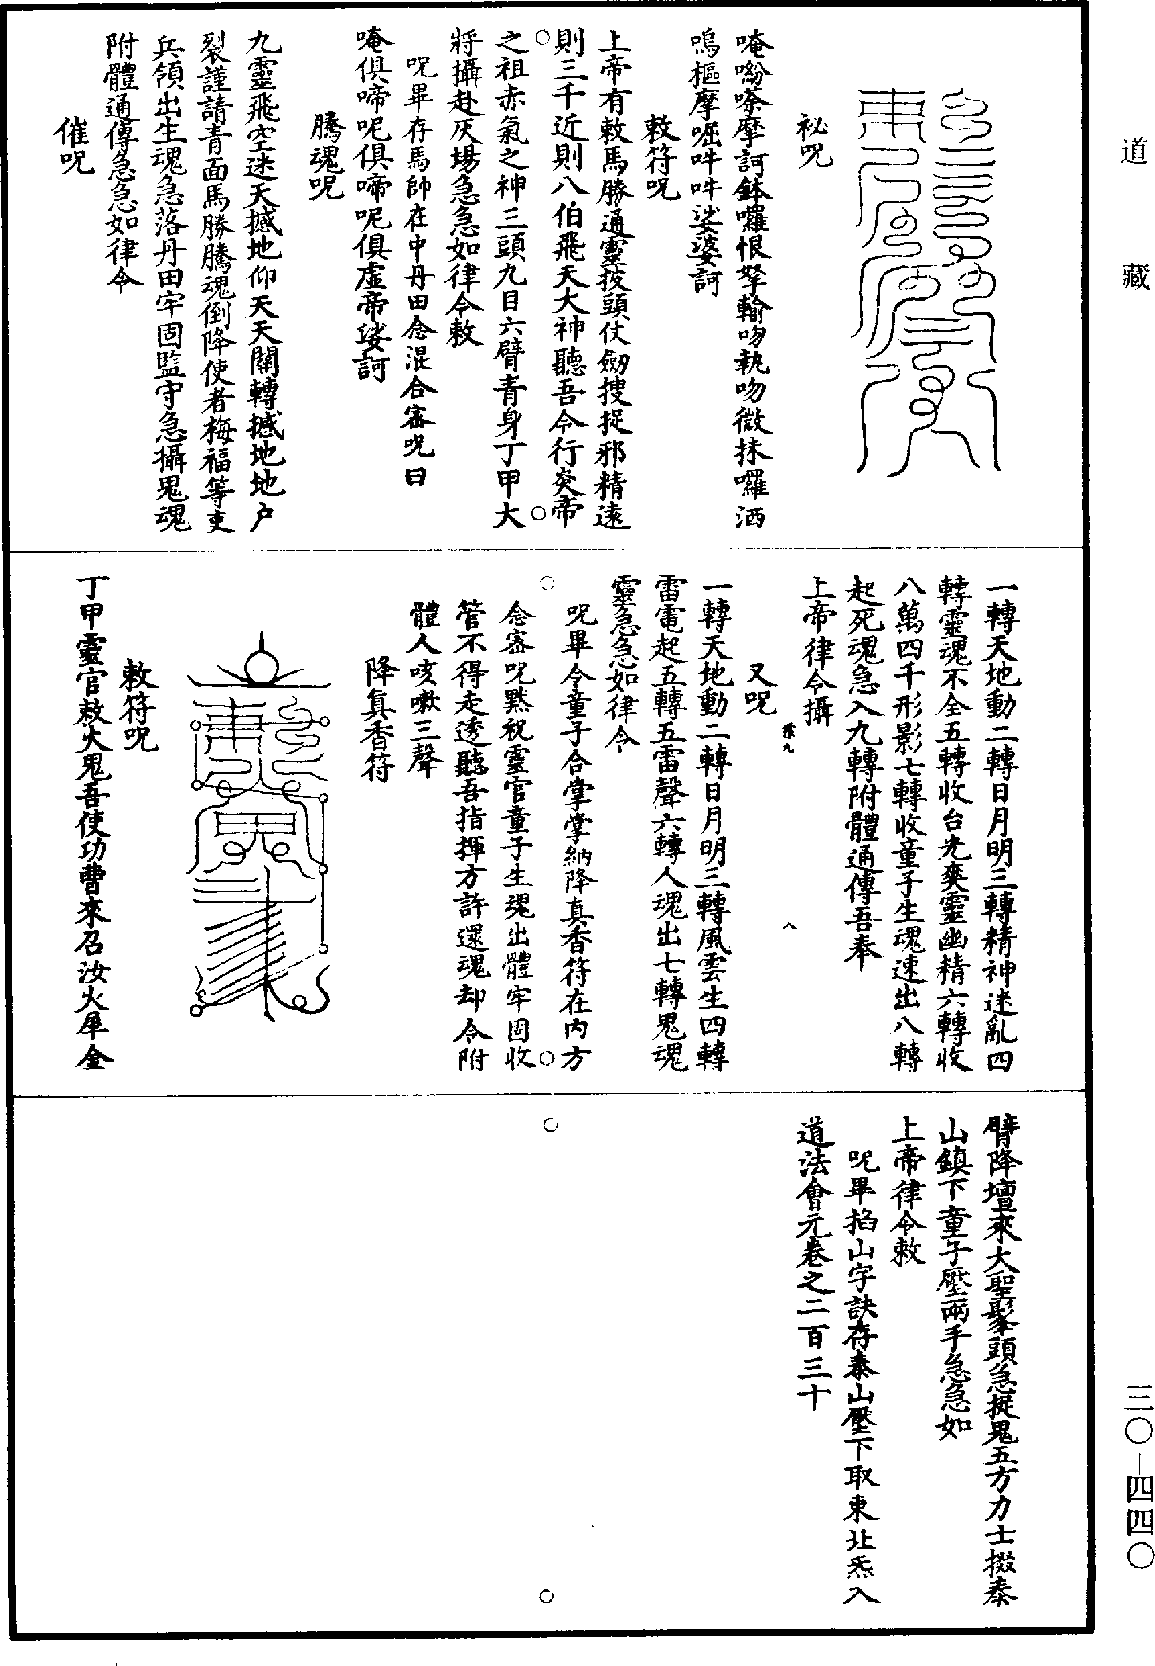 道藏
祕呪
唵㘕嗏摩訶鉢囉恨拏輸吻執吻微抹囉洒
嗚樞摩啒吽吽娑婆訶
敕符呪
上帝有敕馬勝通靈披頭仗劒搜捉邪精遠
則三千近則八伯飛天大神聽吾令行炎帝
之祖赤氣之神三頭九目六臂青身丁甲大
將攝赴灰場急急如律令敕
呪畢存馬帥在中丹田念混合密呪曰
唵俱啼呢俱啼呢俱虛帝娑訶
騰魂呪
九靈飛空迷天撼地仰天天關轉撼地地户
裂謹請青面馬勝騰魂倒降使者梅福等吏
兵領出生魂急落丹田牢固監守急攝鬼魂
附體通傳急急如律令
催呪
一轉天地動二轉日月明三轉精神迷亂四
轉靈魂不全五轉收台光爽靈幽精六轉收
八萬四千形影七轉收童子生魂速出八轉
起死魂急入九轉附體通傳吾奉
上帝律令攝
又呪
八
一轉天地動二轉日月明三轉風雲生四轉
雷電起五轉五雷聲六轉人魂出七轉鬼魂
靈急急如律令
呪畢令童子合掌掌納降真香符在内方
念密呪黙祝靈官童子生魂出體牢固收
管不得走透聽吾指揮方許還魂却令附
體人咳嗽三聲
降真香符
敕符呪
丁甲靈官敕火鬼吾使功曹來召汝火犀金
臂降壇來大聖髼頭急捉鬼五方力士掇泰
山鎮下童子壓兩手急急如
上帝律令敕
呪畢掐山字訣存泰山壓下取東北炁入
道法會元卷之二百三十
三〇—四四〇